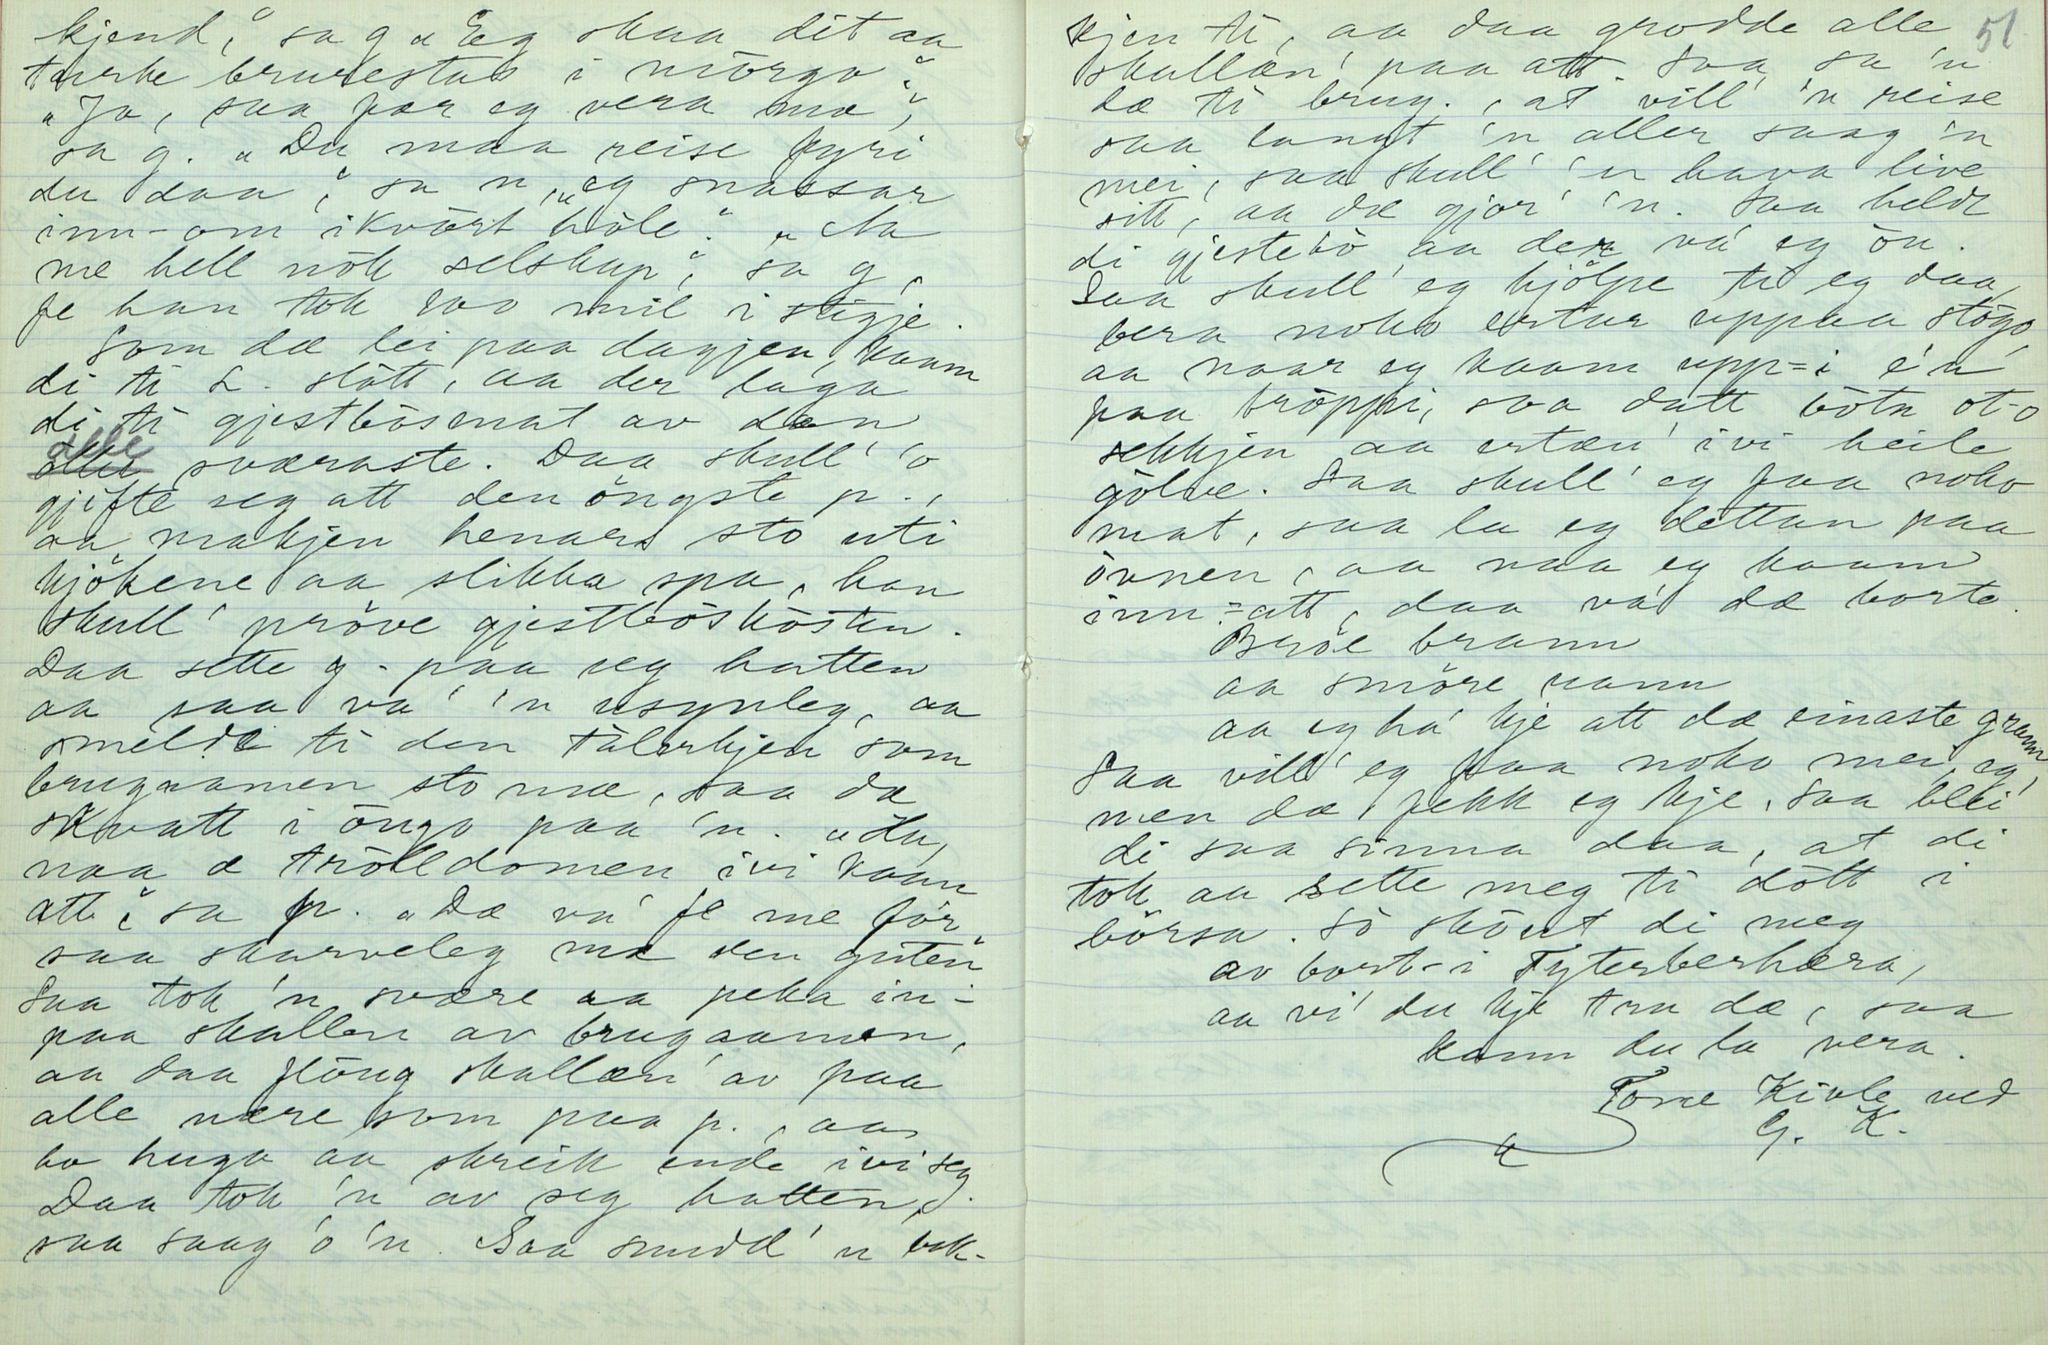 kjend," sa g. "Eg skaa dit aa
turke brurestas i mörgo".
"Ja, saa fær eg vera mæ",
sa g. "Du maa reise fyri
du daa", sa n, "eg snassar
inn-om ikvørt hòle". "Aa
me hell nök selskap", sa g.,
fe han tok two mil i stigje.
Som dæ lei paa dagjen, kaam
di ti L. slött, aa der laga
di ti gjestbösmat av den
alle sværaste. Daa skull' 'o
gjifte seg att den öngste p.,
aa makjen henars sto uti
kjökene aa slikka spa, han
skull' pröve gjestböskösten.
Daa sette g. paa seg hatten
aa saa va' 'n usynleg, aa
smelde ti den tàlerkjen som
brugaamen sto mæ, saa dæ
skvatt i öugo paa 'n. "Hu,
naa æ trölldomen ivi kaam
att", sa p. "Dæ va' fe me før
saa skarveleg mæ den guten"
Saa tok 'n svære aa peka in-
paa skallen av brugaamen,
aa daa flöug skallæn' av paa
alle nære som paa p., aa
ho huga aa skreik ende ivi seg.
Daa tok 'n av seg hatten,
saa saag 'o 'n. Saa snudd' 'n bok-
51
kjen ti, aa daa grodde alle
skullæn' paa att. Saa sa 'n
dæ ti brug., at vill' 'n reise
saa langt 'n aller saag 'n
mei, saa skull' 'n hava live
sitt, aa dæ gjor' 'n. Saa heldt
di gjestebö aa der va' eg òu.
Saa skull' eg hjölpe ti eg daa,
bera noko ertur uppaa stögo,
aa naar eg kaam upp-i é'n
paa tröppi, saa datt bötn ot-o
sekkjen aa ertæn' ivi heile
gölve. Saa skull' eg faa noko
mat, saa la eg dettan paa
òvnen, aa naa eg kaam
inn-att, daa va' dæ borte.
Bröe brann
aa smöre rann
aa eg ha' kje att dæ einaste grann
Saa vill' eg faa noko mei, eg,
men dæ fekk eg kje. Saa blei
di saa sinna daa, at di
tok aa sette meg ti dött i
börsa. So sköut di meg
av bort-i Tyterberhæra,
aa vi' du kje tru dæ, saa
kann du la vera.
Tone Kivle ved
G. K.